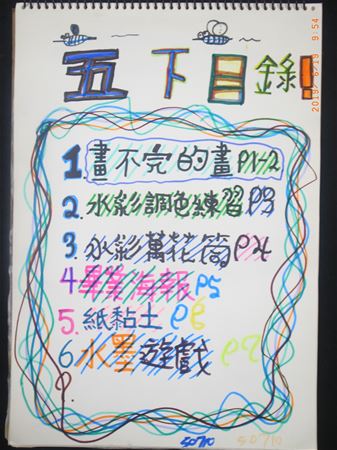 五下目錄!
1 畫不完的畫 P1-2
2. 水彩調色練習 P3
3. 水彩萬花筒 P4
4. 海報 P5
5. 紙黏土 P6
6. 水墨遊戲 P7
50710 50710